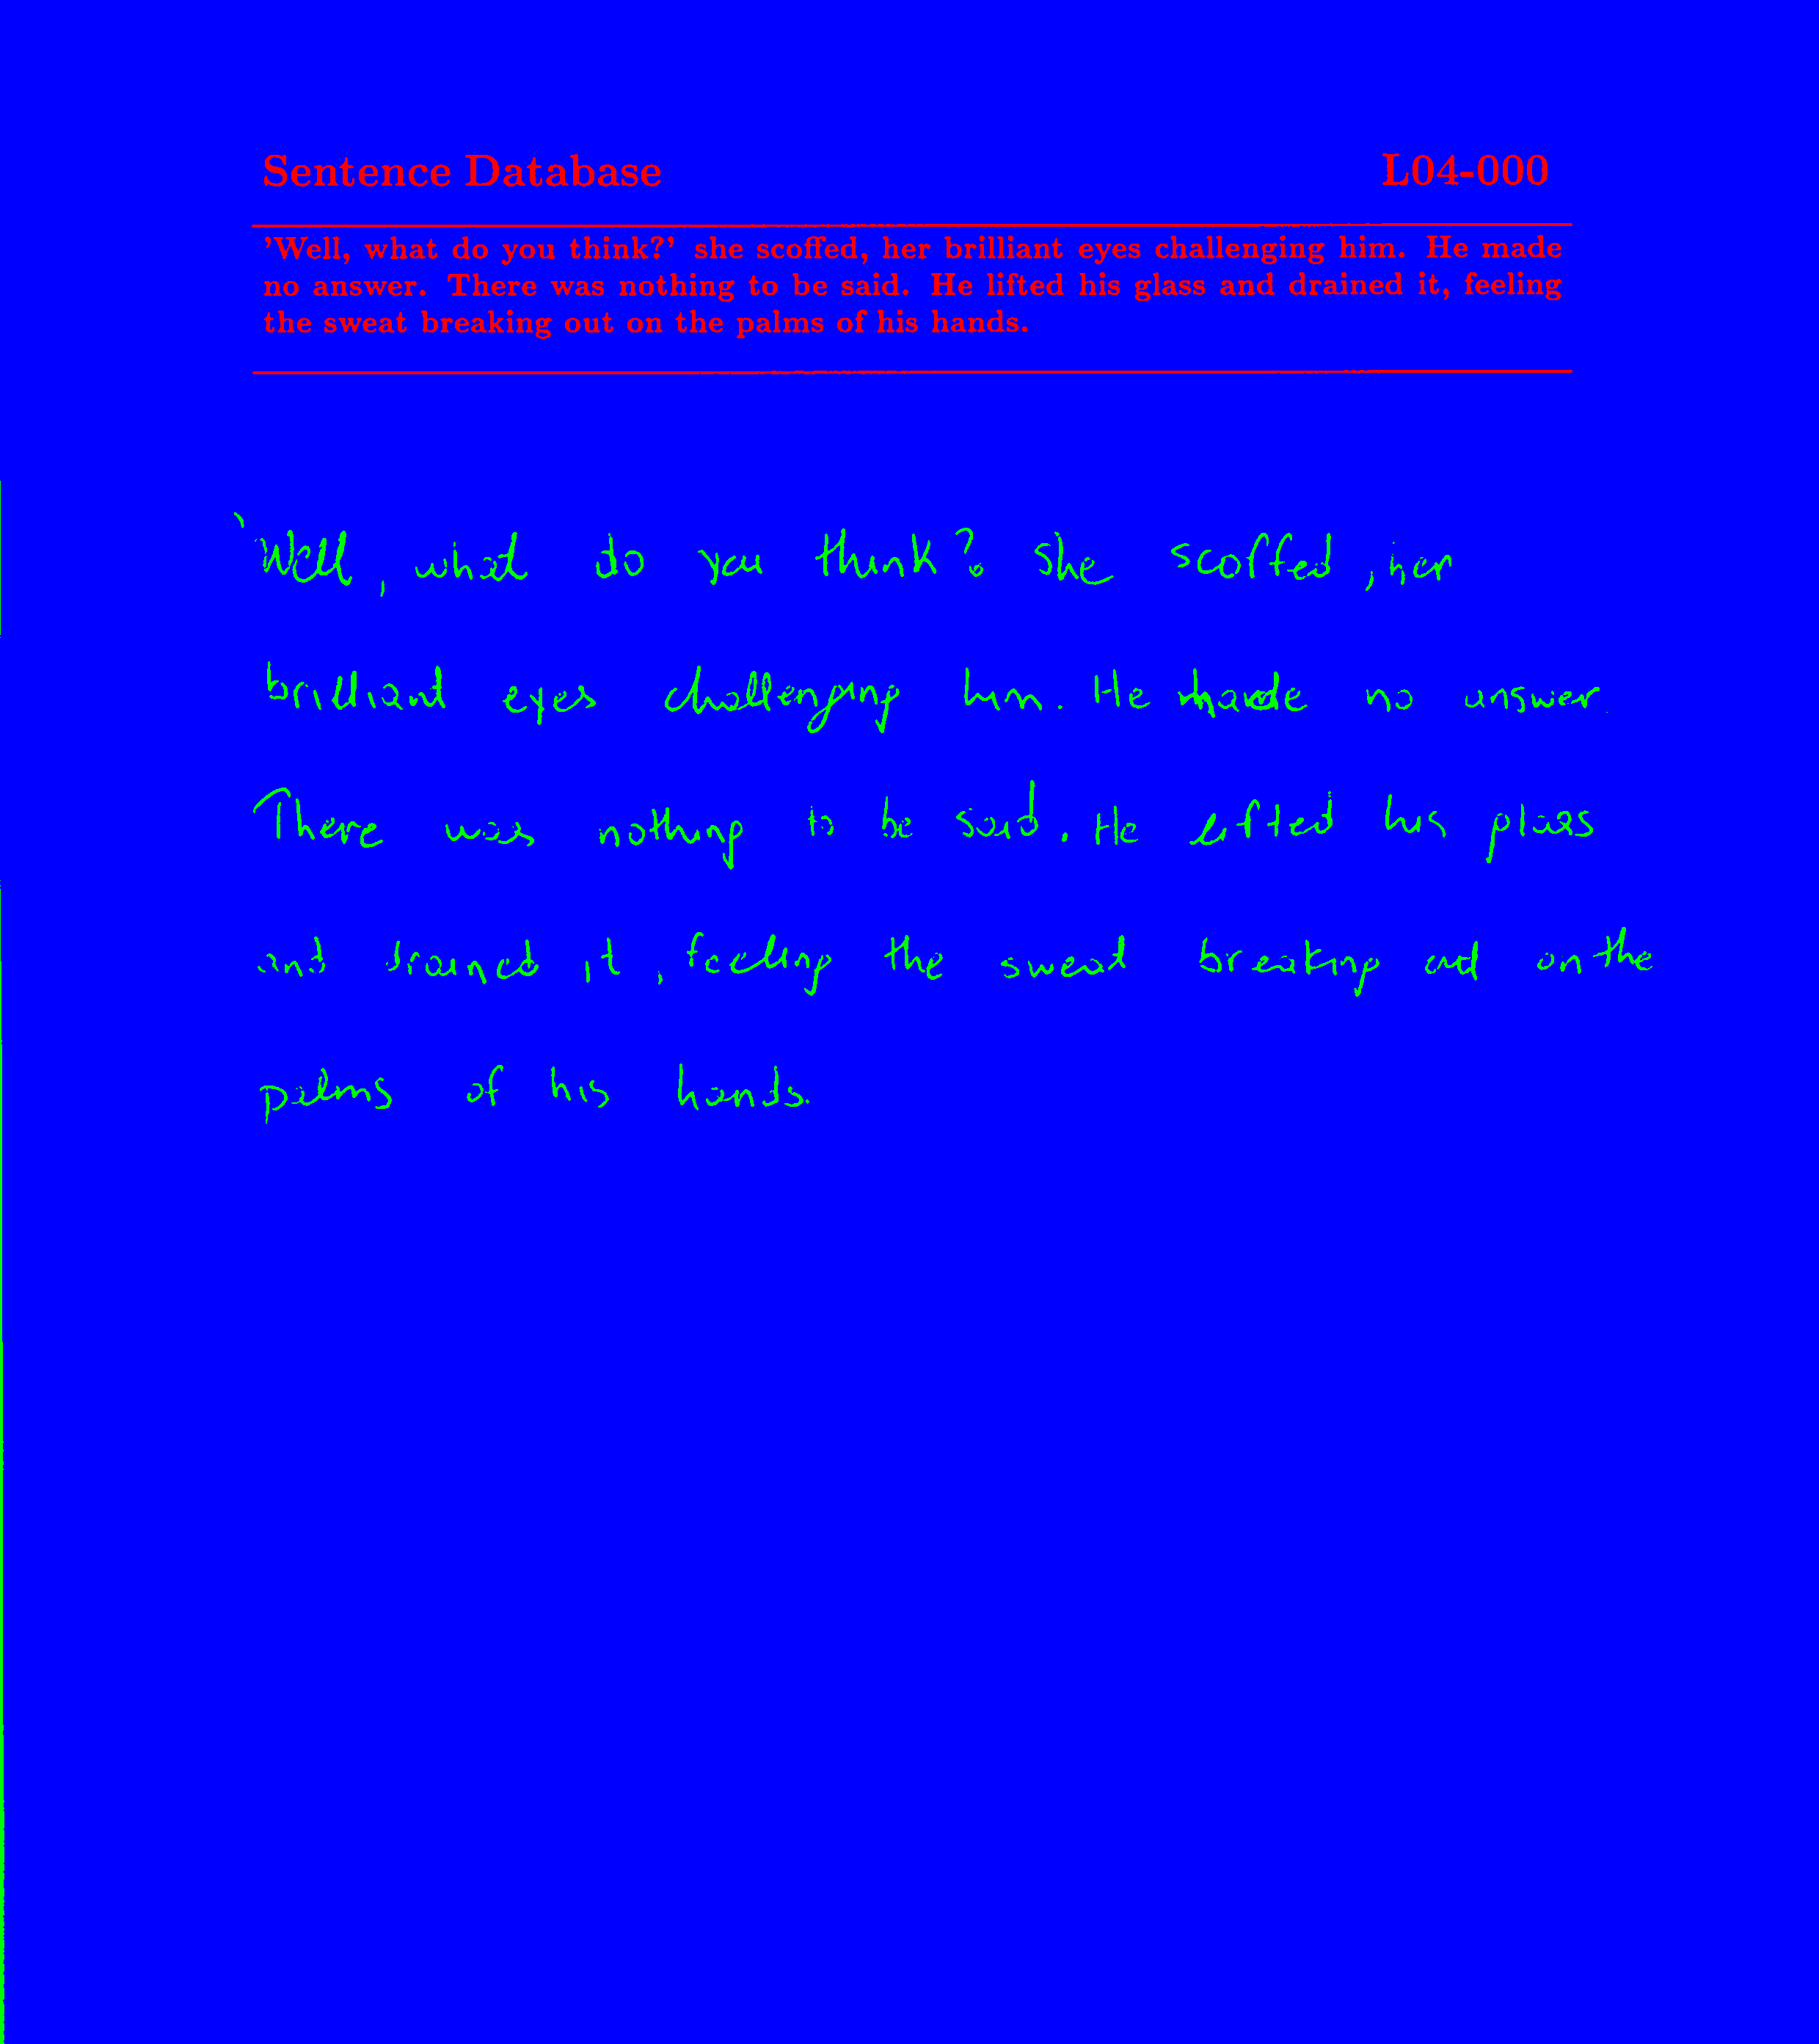 Sentence Database L04-000
'Well, what do you think?' she scoffed, her brilliant eyes challenging him. He made
no answer. There was nothing to be said. He lifted his glass and drained it, feeling
the sweat breaking out on the palms of his hands.
'Well, what do you think? she scoffed, her
brilliant eyes challenging him. He made no answer.
There was nothing to be said. He lifted his glass
and drained it, feeling the sweat breaking out on the
palms of his hands.